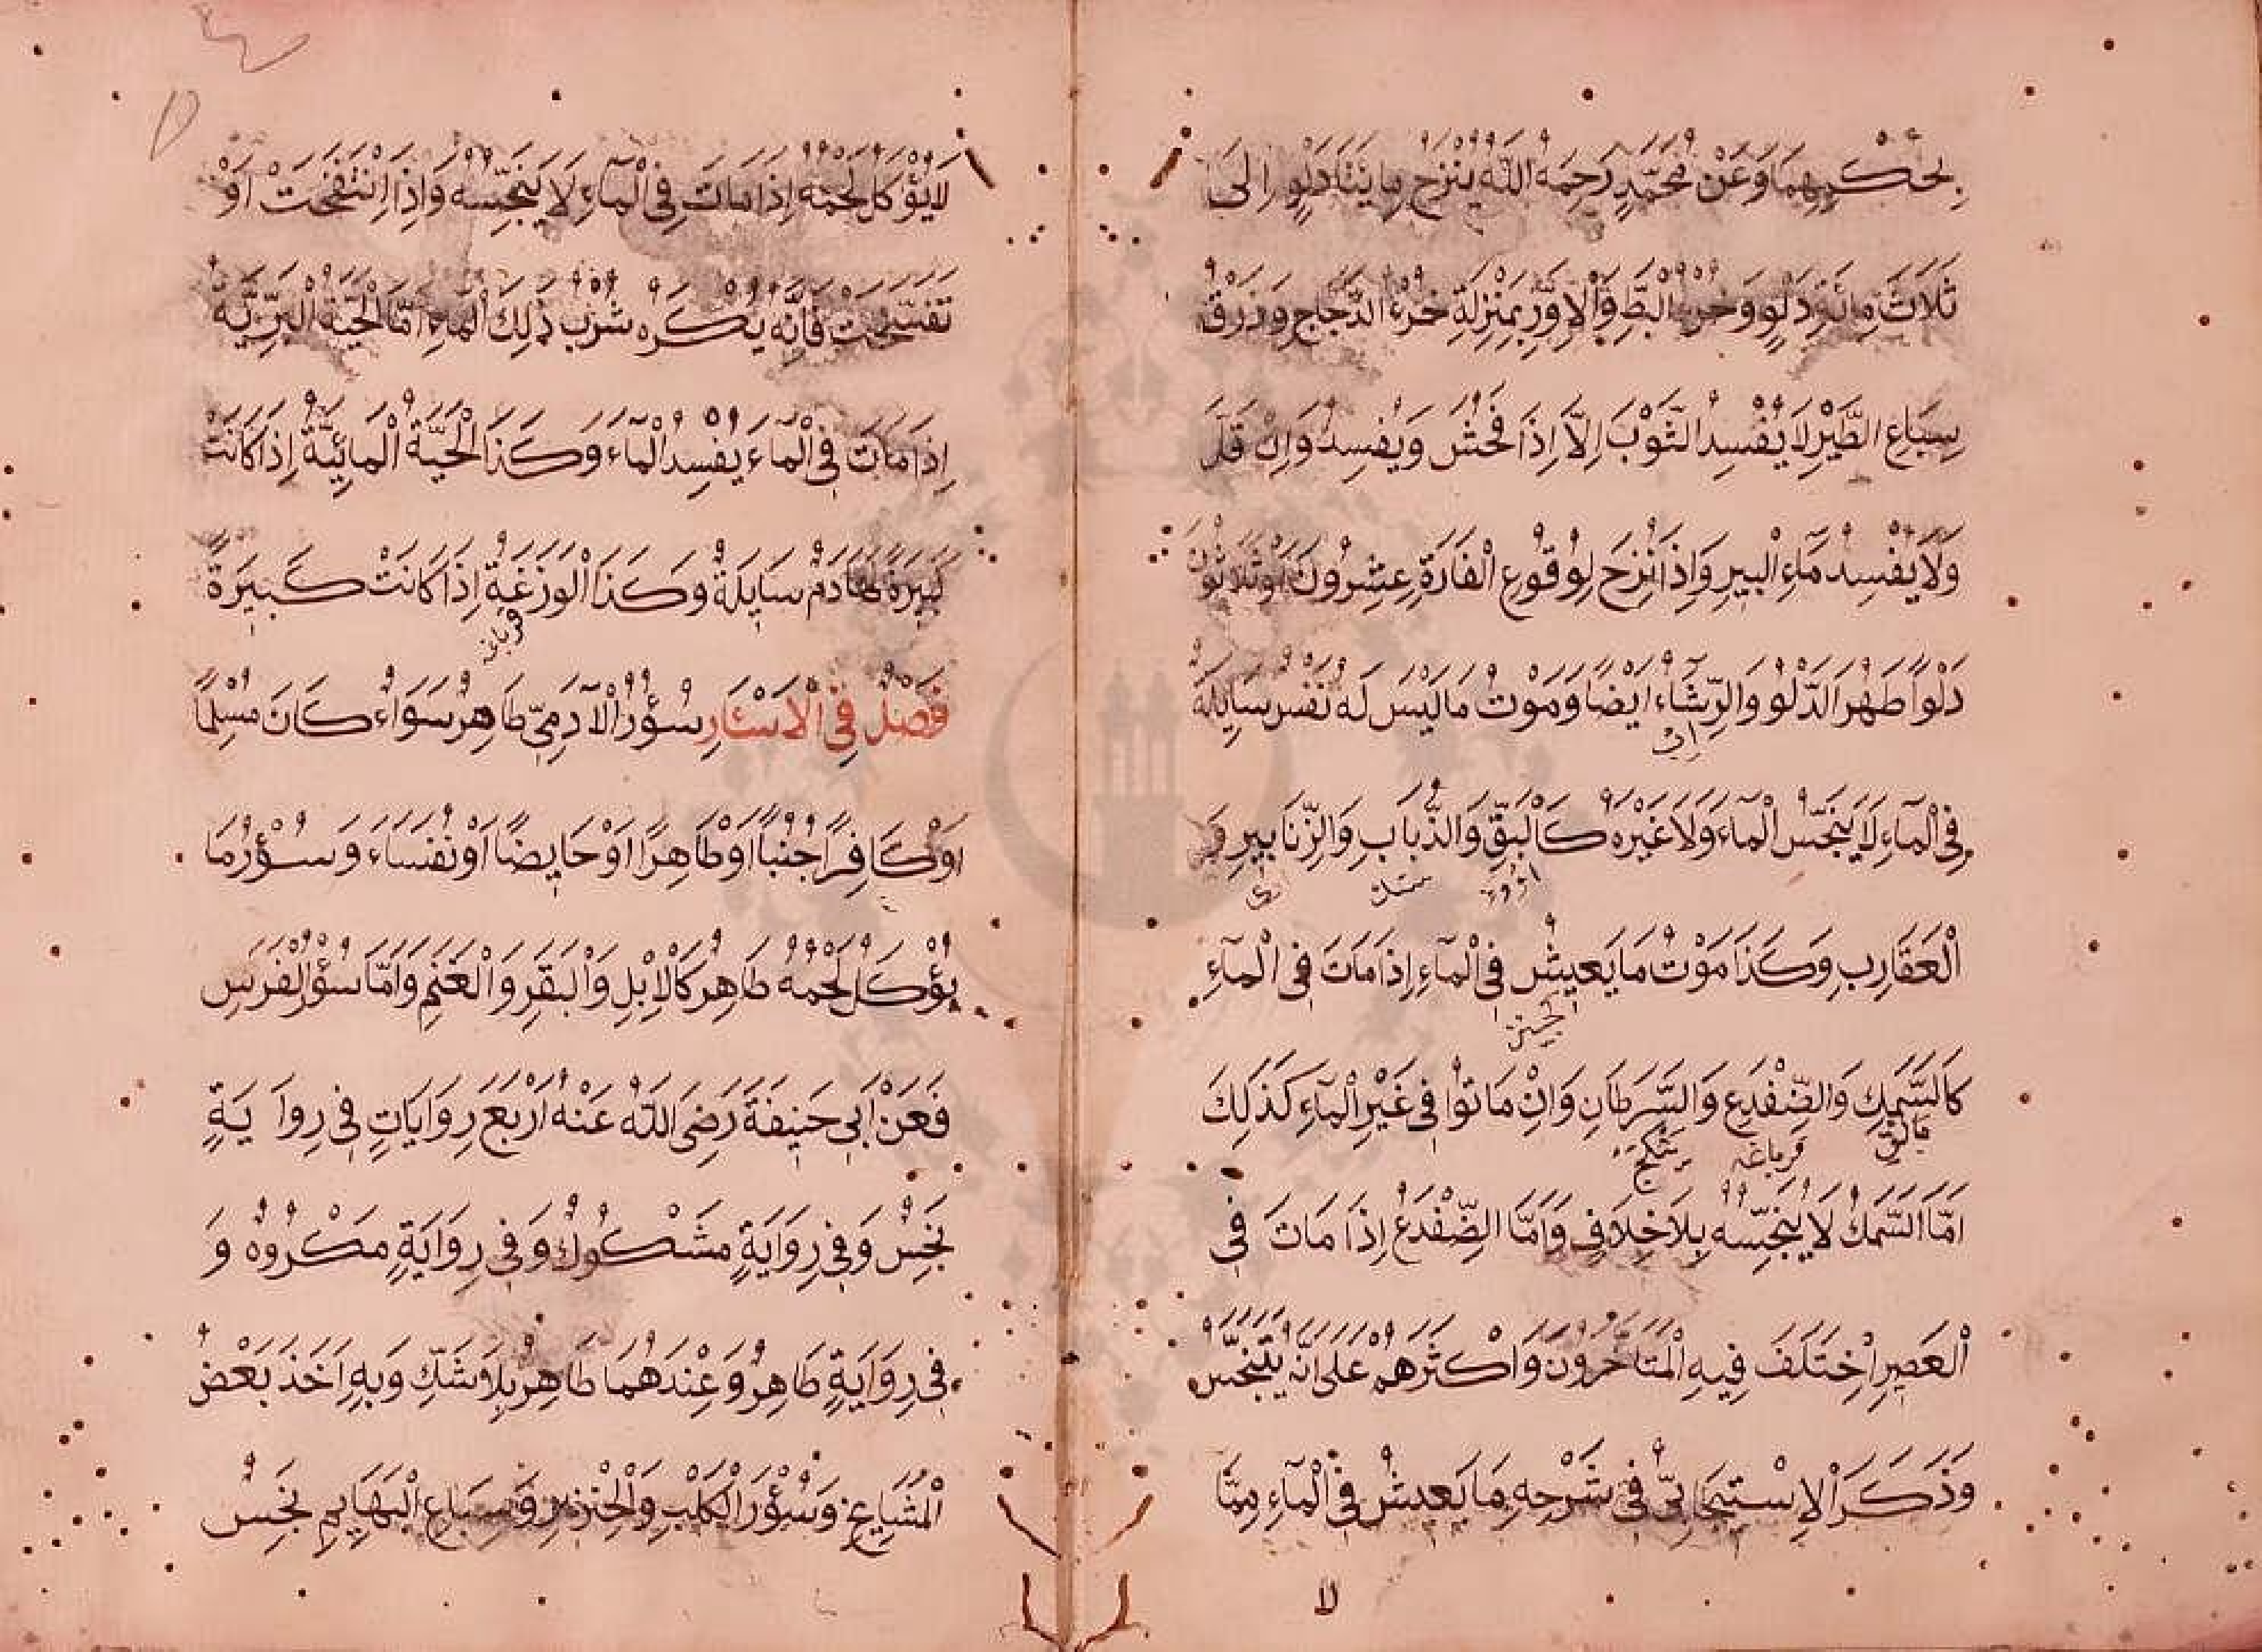 بِحُكْمِهِمَا وَعَنْ مُحَمَّدٍ رَحِمَهُ اللّٰهُ يُنْزَحُ مِايَتَا دَلْوٍ اِلَى
ثَلَاثَ مِائَةِ دَلْوٍ وَخُرْءُ الْبَطِّ وَالْاِوَزِّ بِمَنْزِلَةِ خُرْءِ الدَّجَاجِ وَذَرْقُ
سِبَاعِ الطَّيْرِ لَا يُفْسِدُ الثَّوْبَ اِلَّا اِذَا فَحُشَ وَيُفْسِدُ وَاِنْ قَلَّ
وَلَا يُفْسِدُ مَاءَ الْبِيرِ وَاِذَا نُزِحَ لِوُقُوعِ الْفَارَةِ عِشْرُونَ اَوْ ثَلَاثُونَ
دَلْوًا طَهُرَ الدَّلْوُ وَالرِّشَاءُ اَيْضًا وَمَوْتُ مَا لَيْسَ لَهُ نَفْسٌ سَايِلَةٌ
ايپ
فِي الْمَآءِ لَا يُنَجِّسُ الْمَاءَ وَلَا غَيْرَهُ كَالْبَقِّ وَالذُّبَابِ وَالزَّنَابِيرِ وَ
سنك
الْعَقَارِبِ وَكَذَا مَوْتُ مَا يَعِيشُ فِي الْمَآءِ اِذَا مَاتَ فِي الْمَآءِ
كَالسَّمَكِ وَالضِّفْدِعِ وَالسَّرَطَانِ وَاِنْ مَاتُوا فِي غَيْرِ الْمَآءِ كَذَلِكَ
بالق قرباغه
اَمَّا السَّمَكُ لَا يُنَجِّسُهُ بِلَا خِلَافٍ وَاَمَّا الضِّفْدَعُ اِذَا مَاتَ فِي
الْعَصِيرِ اِخْتَلَفَ فِيهِ الْمُتَاَخِّرُونَ وَاَكْثَرُهُمْ عَلَى اَنَّهُ يَتَنَجَّسُ
وَذَكَرَ الْاِسْتِيجَابِيّ فِي شَرْحِهِ مَا يَعِيشُ فِي الْمَآءِ مِمَّا
لا
لَا يُؤْكَلُ لَحْمُهُ اِذَا مَاتَ فِي الْمَآءِ لَا يُنَجِّسُهُ وَاِذَا اِنْتَفَخَتْ اَوْ
تَفَسَّخَتْ فَاِنَّهُ يُكْرَهُ شُرْبُ ذٰلِكَ الْمَاءِ اَمَّا الْحَيَّةُ الْبَرِّيَّةُ
اِذَا مَاتَ فِي الْمَاءِ يُفْسِدُ الْمَآءَ وَكَذَا الْحَيَّةُ الْمَائِيَّةُ اِذَا كَانَتْ
كَبِيرَةً لَهَا دَمٌ سَايِلَةٌ وَكَذَا الْوَزَغَةُ اِذَا كَانَتْ كَبِيرَةً
قرباغه
فَصْلٌ فِي الْاَسْئَارِ سُؤْرُ الْاٰدَمِيّ طَاهِرٌ سَوَاءٌ كَانَ مُسْلِمًا
اَوْ كَافِرًا جُنُبًا اَوْ طَاهِرًا اَوْ حَايِضًا اَوْ نُفَسَاءَ وَسُؤْرُ مَا
يُؤْكَلُ لَحْمُهُ طَاهِرٌ كَالْاِبِلِ وَالْبَقَرِ وَالْغَنَمِ وَاَمَّا سُؤْرُ الْفَرَسِ
فَعَنْ اَبِي حَنِيفَةَ رَضِىَ اللّٰهُ عَنْهُ اَرْبَعُ رِوَايَاتٍ فِي رِوَايَةٍ
نَجِسٌ وَفِي رِوَايَةٍ مَشْكُوكٌ وَفِي رِوَايَةٍ مَكْرُوهٌ وَ
فِي رِوَايَةٍ طَاهِرٌ وَعِنْدَهُمَا طَاهِرٌ بِلَا شَكٍّ وَبِهِ اَخَذَ بَعْضُ
الْمَشَايِخِ وَسُؤْرُ الْكَلْبِ وَالْخِنْزِيرِ وَسِبَاعِ الْبَهَايِمِ نَجِسٌ